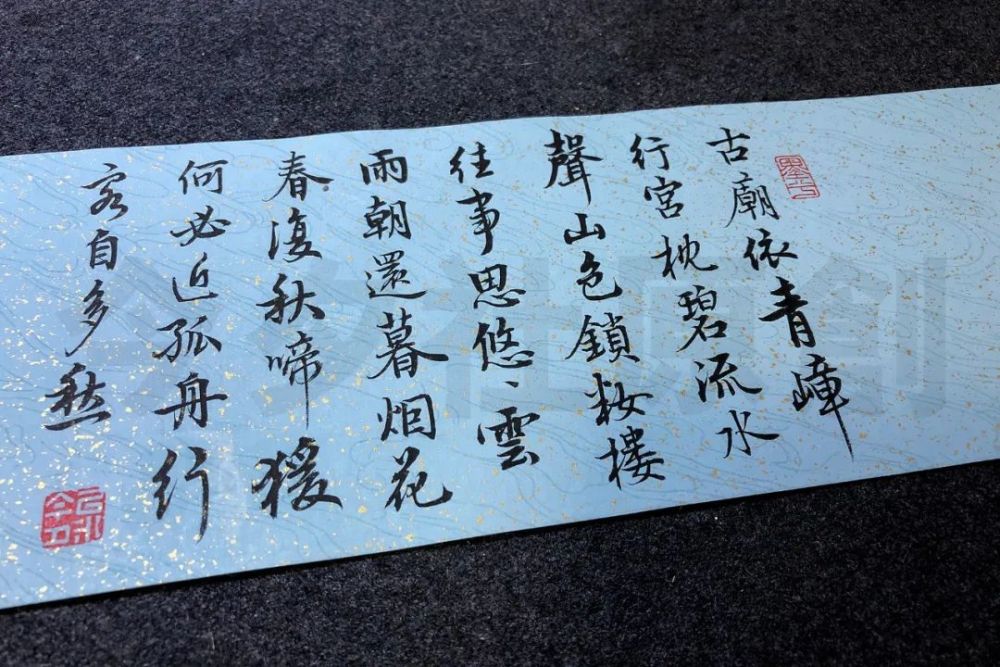 古廟依青嶂
行宮枕碧流水
聲山色鎖妝樓
往事思悠〻雲
雨朝還暮烟花
春復秋啼猨
何必近孤舟行
客自多愁